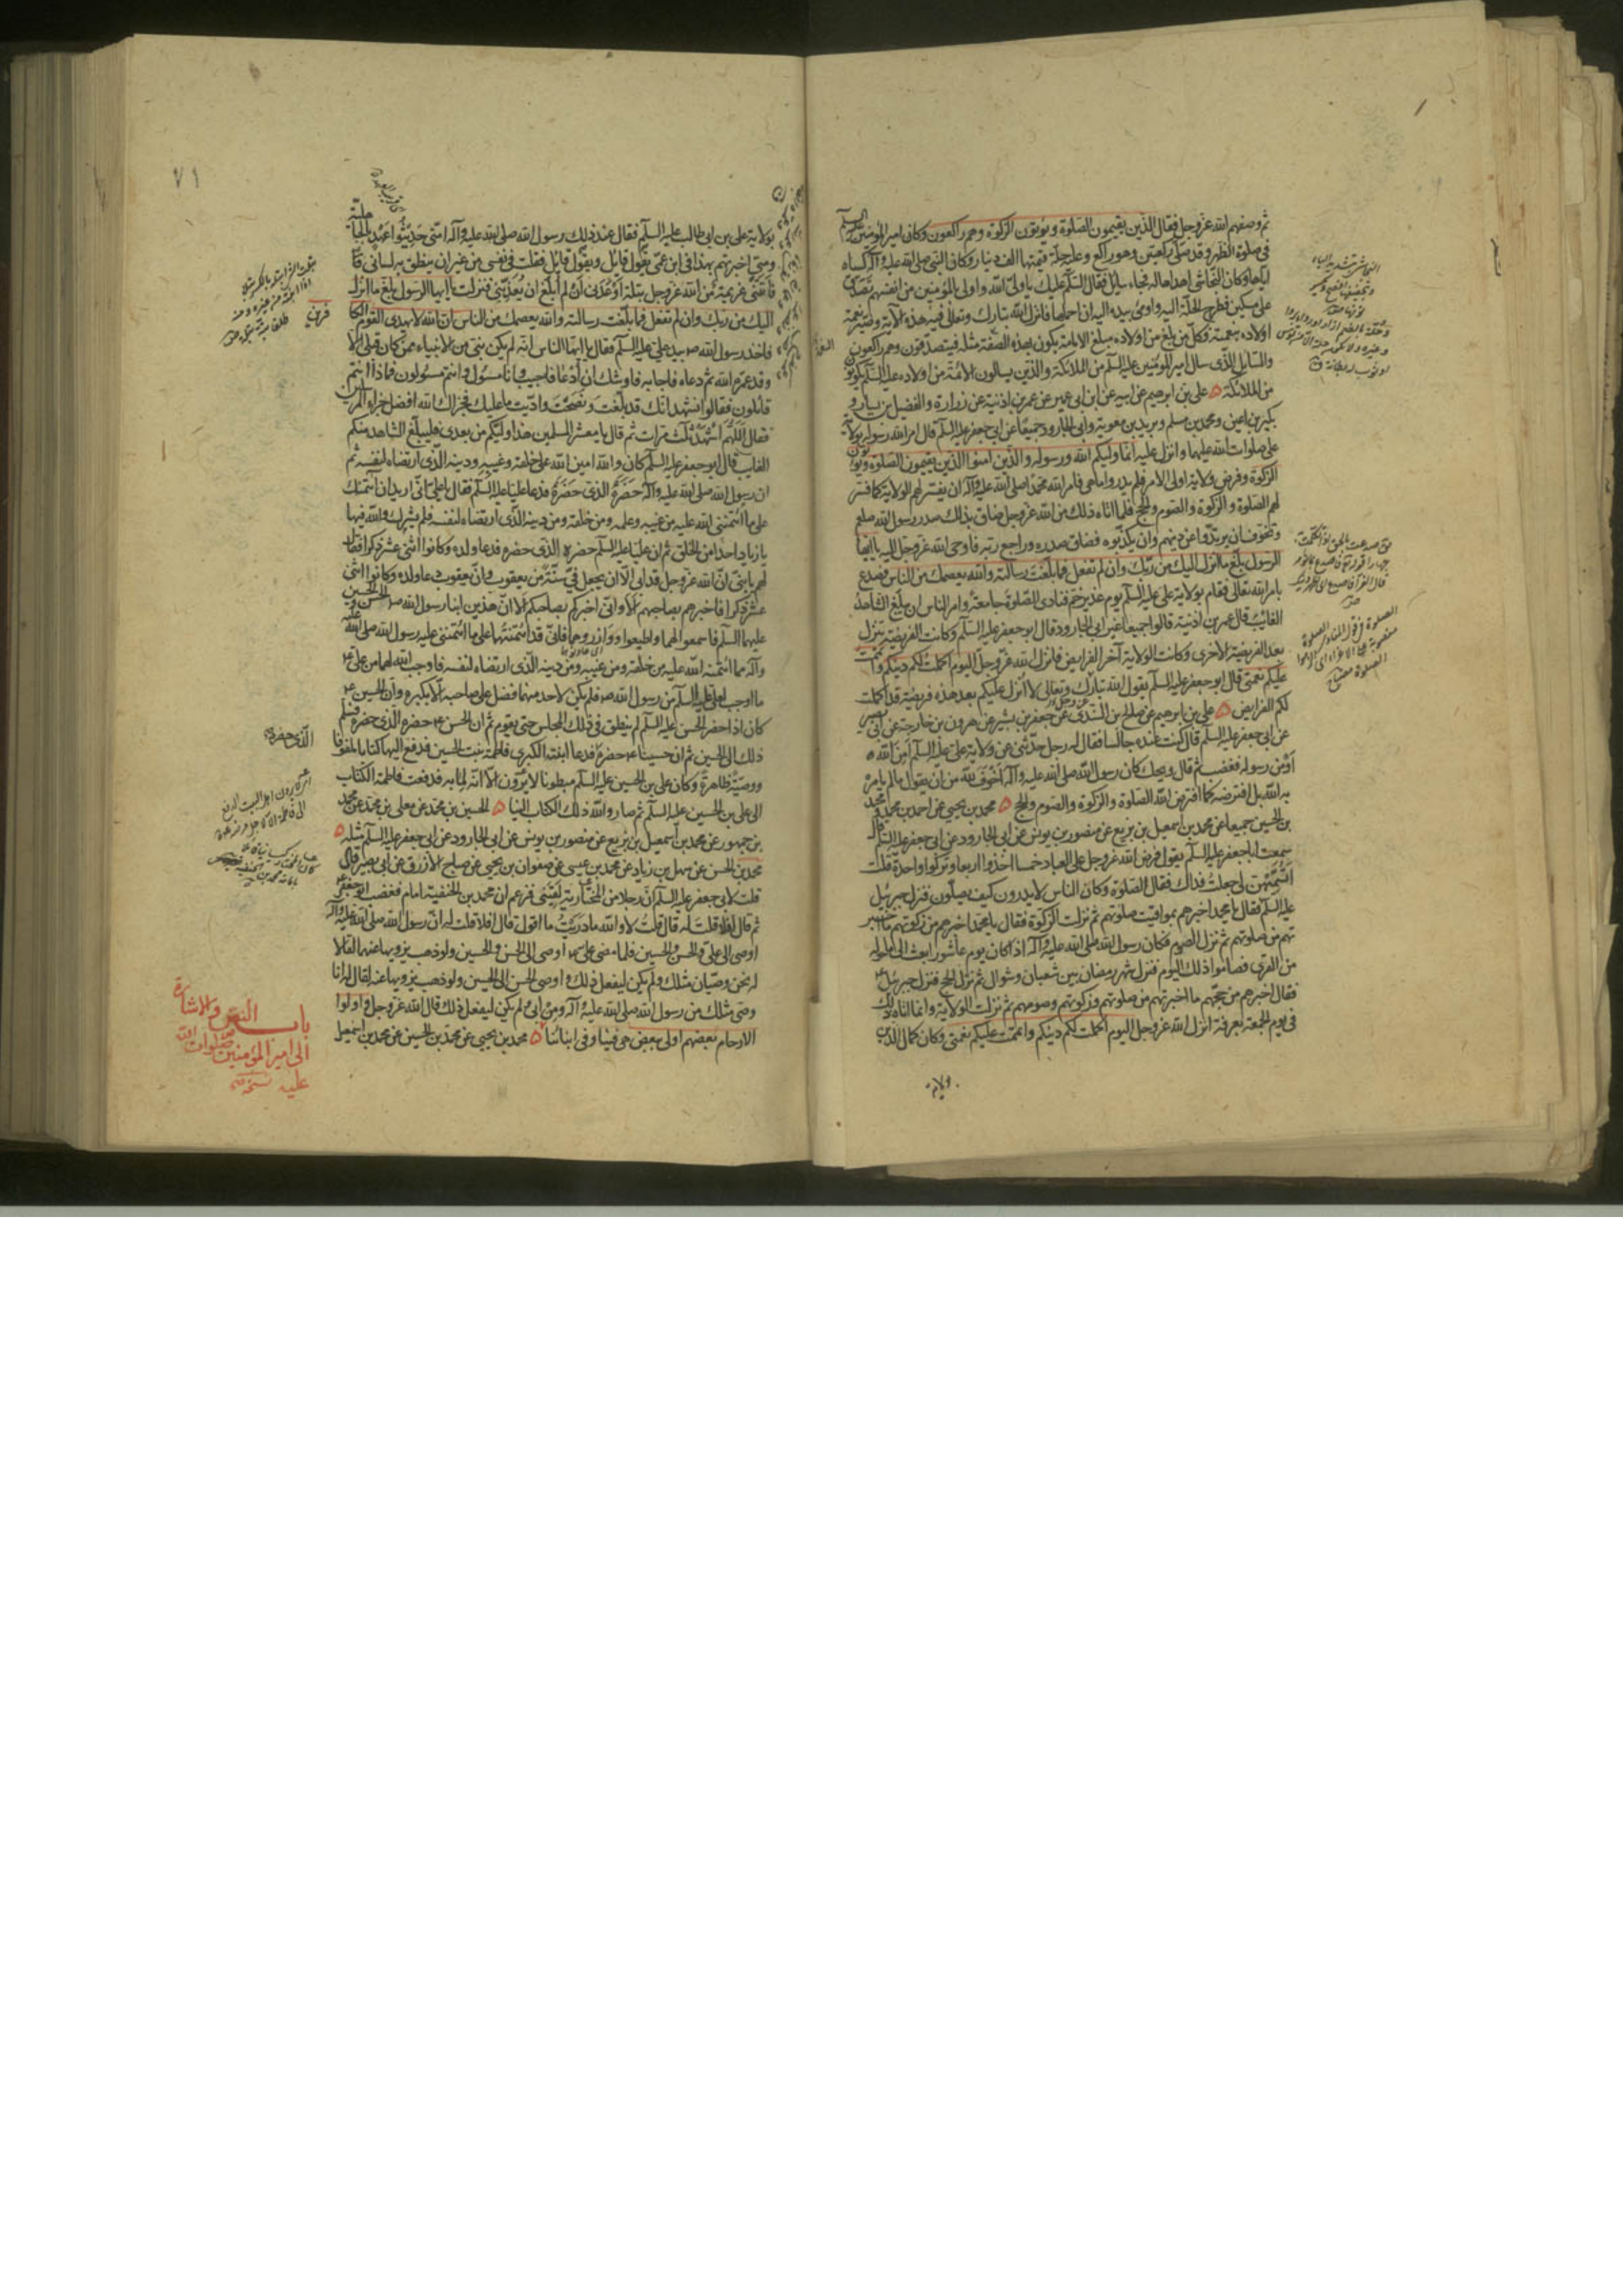 ثم وصفهم الله عز وجل فقال الذين يقيمون الصلوة ويؤتون الزكوة وهم راكعون وكان امير المؤمنين عليه السلم
في صلوة الظهر وقد صلى ركعتين وهو راكع وعليه حلة قيمتها الف دينار وكان النبي صلى الله عليه وآله كساه
اياها وكان النجاشي اهداها له فجاء سايل فقال السلم عليك يا ولي الله واولى بالمؤمنين من انفسهم تصدق
على مسكين فطرح الحلة اليه واومى بيده اليه ان احملها فانزل الله تبارك وتعالى فيه هذه الآية وصير نعمة
اولاده بنعمته فكل من بلغ من اولاده مبلغ الامامة يكون بهذه الصفة مثله فيتصدقون وهم راكعون
والسايل الذي سال امير المؤمنين عليه السلم من الملائكة والذين يسالون الائمة من اولاده عليه السلم يكونون
من الملائكة علي بن ابرهيم عن ابيه عن ابن ابي عمير عن عمر بن اذينة عن زرارة والفضيل بن يسار و
بكير بن اعين ومحمد بن مسلم وبريد بن معوية وابي الجارود جميعا عن ابي جعفر عليه السلم قال امر الله رسوله بولاية
علي صلوات الله عليهما وانزل عليه انما وليكم الله ورسوله والذين امنوا الذين يقيمون الصلوة ويؤتون
الزكوة وفرض ولاية اولى الامر فلم يدروا ما هي فامر الله محمدا صلى الله عليه وآله ان يفسر لهم الولاية كما فسر
لهم الصلوة والزكوة والصوم والحج فلما اتاه ذلك من الله عز وجل ضاق بذلك صدر رسول الله صلعم
وتخوف ان يرتدوا عن دينهم وان يكذبوه فضاق صدره وراجع ربه فاوحى الله عز وجل اليه يا ايها
الرسول بلغ ما انزل اليك من ربك وان لم تفعل فما بلغت رسالته والله يعصمك من الناس فصدع
بامر الله تعالى فقام بولاية علي عليه السلم يوم غدير خم فنادى الصلوة جامعة وامر الناس ان يبلغ الشاهد
الغائب قال عمر بن اذينة قالوا جميعا غير ابي الجارود وقال ابو جعفر عليه السلم وكانت الفريضة تنزل
بعد الفريضة الاخرى وكانت الولاية آخر الفرايض فانزل الله عز وجل اليوم اكملت لكم دينكم واتممت
عليكم نعمتي قال ابو جعفر عليه السلم يقول الله تبارك وتعالى لا انزل عليكم بعد هذه فريضة قد اكملت
لكم الفرايض علي بن ابرهيم عن صالح بن السندي عن جعفر بن بشير عن هرون بن خارجة عن ابي بصير
عن ابي جعفر عليه السلم قال كنت عنده جالسا فقال له رجل حدثني عن ولاية علي عليه السلم امن الله
او من رسوله فغضب ثم قال ويحك كان رسول الله صلى الله عليه وآله اخوف لله من ان يقول ما لم يامره
به الله بل افترضه كما افترض الله الصلوة والزكوة والصوم والحج محمد بن يحيى عن احمد بن محمد ومحمد
بن الحسين جميعا عن محمد بن اسمعيل بن بزيع عن منصور بن يونس عن ابي الجارود عن ابي جعفر عليه السلم قال
سمعت ابا جعفر عليه السلم يقول فرض الله عز وجل على العباد خمسا اخذوا اربعا وتركوا واحدة قلت
اتسميهن لي جعلت فداك فقال الصلوة وكان الناس لا يدرون كيف يصلون فنزل جبرئيل
عليه السلم فقال يا محمد اخبرهم بمواقيت صلوتهم ثم نزلت الزكوة فقال يا محمد اخبرهم من زكوتهم ما اخبر
تهم من صلوتهم ثم نزل الصوم فكان رسول الله صلى الله عليه وآله اذا كان يوم عاشورا بعث الى ما حوله
من القرى فصاموا ذلك اليوم فنزل شهر رمضان بين شعبان وشوال ثم نزل الحج فنزل جبرئيل
فقال اخبرهم من حجهم ما اخبرتهم من صلوتهم وزكوتهم وصومهم ثم نزلت الولاية وانما اتاه ذلك
في يوم الجمعة بعرفة انزل الله عز وجل اليوم اكملت لكم دينكم واتممت عليكم نعمتي وكان كمال الدين
٧١
بولاية علي بن ابي طالب عليه السلم فقال عند ذلك رسول الله صلى الله عليه وآله امتي حديثوا عهد بالجاهلية
ومتى اخبرتهم بهذا في ابن عمي يقول قايل ويقول قايل فقلت في نفسي من غير ان ينطق به لساني
فاتتني عزيمة من الله عز وجل بتلة اوعدني ان لم ابلغ ان يعذبني فنزلت يا ايها الرسول بلغ ما انزل
اليك من ربك وان لم تفعل فما بلغت رسالته والله يعصمك من الناس ان الله لا يهدي القوم الكا
فاخذ رسول الله ص بيد علي عليه السلم فقال يا ايها الناس انه لم يكن نبي من الانبياء ممن كان قبلي الا
وقد عمره الله ثم دعاه فاجابه فاوشك ان ادعا فاجيب وانا مسؤل وانتم مسؤلون فماذا انتم
قائلون فقالوا نشهد انك قد بلغت ونصحت واديت ما عليك فجزاك الله افضل جزاء المرسلين
فقال اللهم اشهد ثلث مرات ثم قال يا معشر المسلمين هذا وليكم من بعدي فليبلغ الشاهد منكم
الغايب قال ابو جعفر عليه السلم كان والله امين الله على خلقه وغيبه ودينه الذي ارتضاه لنفسه ثم
ان رسول الله صلى الله عليه وآله حضره الذي حضره فدعا عليا عليه السلم فقال يا علي اني اريد ان ائتمنك
على ما ائتمنني الله عليه من غيبه وعلمه ومن خلقه ومن دينه الذي ارتضاه لنفسه فلم يشرك والله فيها
يا زياد احدا من الخلق ثم ان عليا عليه السلم حضره الذي حضره فدعا ولده وكانوا اثنى عشر ذكرا فقال
لهم يا بني ان الله عز وجل قد ابى الا ان يجعل في سنة من يعقوب وان يعقوب دعا ولده وكانوا اثنى
عشر ذكرا فاخبرهم بصاحبهم الا واني اخبركم بصاحبكم الا ان هذين ابنا رسول الله ص الحسن والحسين
عليهما السلم فاسمعوا لهما واطيعوا ووازروهما فاني قد ائتمنتهما على ما ائتمنني عليه رسول الله صلى الله عليه
وآله مما ائتمنه الله عليه من خلقه ومن غيبه ومن دينه الذي ارتضاه لنفسه فاوجب الله لهما من علي
ما اوجب لعلي عليه السلم من رسول الله ص فلم يكن لاحد منهما فضل على صاحبه الا بكبره وان الحسين
كان اذا حضر الحسن عليه السلم لم ينطق في ذلك المجلس حتى يقوم ثم ان الحسن حضره الذي حضره فسلم
ذلك الى الحسين ثم ان حسينا حضره فدعا ابنته الكبرى فاطمة بنت الحسين فدفع اليها كتابا ملفوفا
ووصية ظاهرة وكان علي بن الحسين عليه السلم مبطونا لا يرون الا انه لما به فدفعت فاطمة الكتاب
الى علي بن الحسين عليه السلم ثم صار والله ذلك الكتاب الينا الحسين بن محمد عن معلى بن محمد عن محمد
بن جمهور عن محمد بن اسمعيل بن بزيع عن منصور بن يونس عن ابي الجارود عن ابي جعفر عليه السلم مثله
محمد بن الحسن عن سهل بن زياد عن محمد بن عيسى عن صفوان بن يحيى عن صباح الازرق عن ابي بصير قال
قلت لابي جعفر عليه السلم ان رجلا من المختارية لقيني فزعم ان محمد بن الحنفية امام فغضب ابو جعفر
ثم قال افلا قلت له قال قلت لا والله ما دريت ما اقول قال افلا قلت له ان رسول الله صلى الله عليه وآله
اوصى الى علي والحسن والحسين فلما مضى علي اوصى الى الحسن والحسين ولو ذهب يزويها عنهما لقالا
له نحن وصيان مثلك ولم يكن ليفعل ذلك واوصى الحسن الى الحسين ولو ذهب يزويها عنه لقال له انا
وصي مثلك من رسول الله صلى الله عليه وآله ومن ابي ولم يكن ليفعل ذلك قال الله عز وجل واولوا
الارحام بعضهم اولى ببعض هي فينا وفي ابنائنا محمد بن يحيى عن محمد بن الحسين عن محمد بن اسمعيل
الذي حضره
باب النص والاشارة
الى امير المؤمنين صلوات الله
عليه